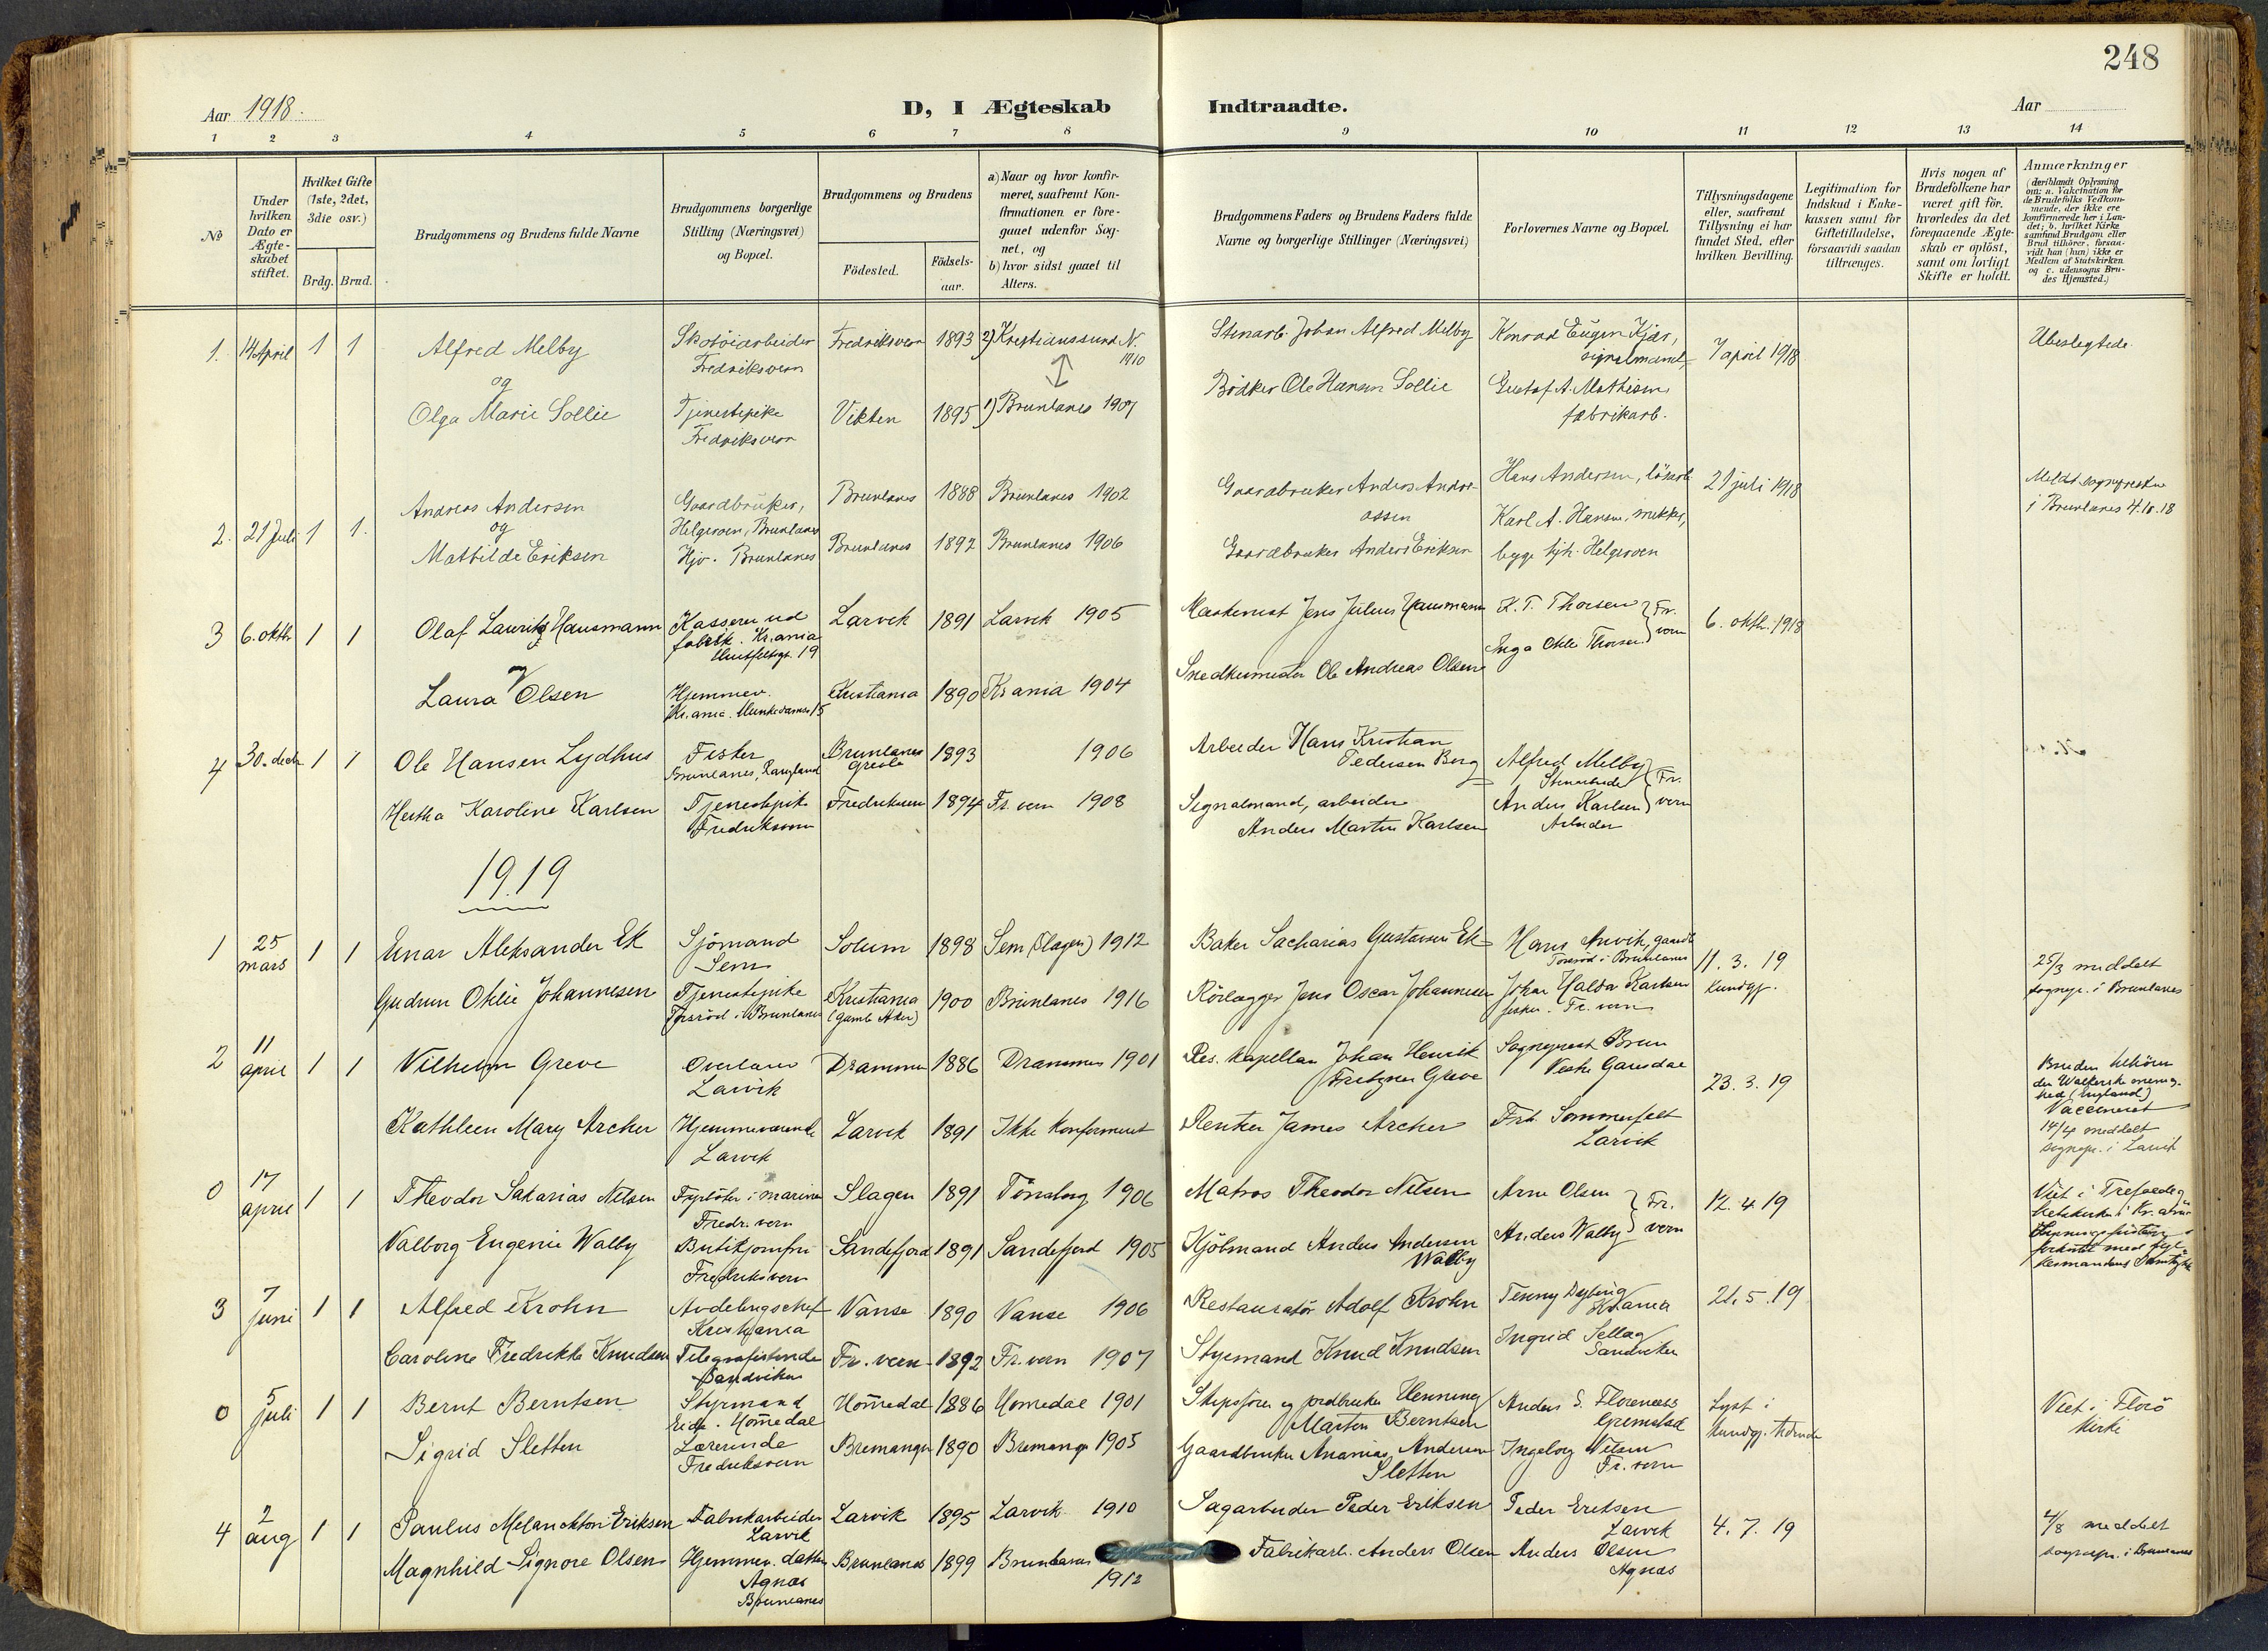 248
Aar 1918.
D, I Ægteskab Indtraadte.
Aar
1 2 3 4 5 6 7 8 9 10 11 12 13 14
No
Under hvilken Dato er Ægte-skabet stiftet.
Hvilket Gifte (1ste, 2det, 3die osv.)
Brdg. Brud.
Brudgommens og Brudens fulde Navne
Brudgommens borgerlige Stilling (Næringsvei) og Bopæl.
Brudgommens og Brudens
Födested.
Födsels-aar.
a) Naar og hvor konfir-meret, saafremt Kon-firmationen er fore-gaaet udenfor Sog-net, og
b) hvor sidst gaaet til Alters.
Brudgommens Faders og Brudens Faders fulde Navne og borgerlige Stillinger (Næringsvei)
Forlovernes Navne og Bopæl.
Tillysningsdagene eller, saafremt Tillysning ei har fundet Sted, efter hvilken Bevilling.
Legitimation for Indskud i Enke-kassen samt for Giftetilladelse, forsaavidt saadan tiltrænges.
Hvis nogen af Brudefolkene har været gift för, hvorledes da det foregaaende Ægte-skab er oplöst, samt om lovligt Skifte er holdt.
Anmærkninger
(deriblandt Oplysning om: a. Vakcination for de Brudefolks Vedkom-mende, der ikke ere konfirmerede her i Lan-det; b. hvilket Kirke-samfund Brudgom eller Brud tilhörer, forsaa-vidt han (hun) ikke er Medlem af Statskirken og c. udensogns Bru-des Hjemsted.)
1. 14 April 1 1 Alfred Melby Skotöiarbeider Fredriksvern Fredriksvern 1893 2) Kristianssund N. 1910 Stenarb. Johan Alfred Melby Konrad Eugen Kjær, signalmand 7 april 1918 Ubeslegtede.
og
Olga Marie Sollie Tjenestepike Fredriksvern Vikten 1895 1) Brunlanes 1909 Bödker Ole Hansen Sollie Gustaf A. Mathisen fabrikarb.
2. 21 Juli 1 1. Andreas Andersen Gaardbruker, Helgeroen, Brunlanes Brunlanes 1888 Brunlanes 1902 Gaardbruker Anders Andre-assen Hans Andersen, lösarb 21 juli 1918 Meldt sognepresten i Brunlanes 4.10.18
og
Mathilde Eriksen Hjv. Brunlanes Brunlanes 1892 Brunlanes 1906 Gaardbruker Anders Eriksen Karl A. Hansen, snekker, begge hjh. Helgeroen
3 6. oktbr 1 1 Olaf Lauritz Hausmann Kasserer ved fabrik. Kr.ania Huitfeldtsgt. 19 Larvik 1891 Larvik 1905 Maskinist Jens Julius Hausmann K. T. Thorsen Fr. vern 6. oktbr. 1918
og
Laura Olsen Hjemmev. Kr.ania. Munkedamsv 15 Kristiania 1890 Kr.ania 1904 Snedkermester Ole Andreas Olsen Inga Otilie Thorsen
4 30. decbr 1 1 Ole Hansen Lydhus Fisker Brunlanes, Langland Brunlanes 1893 1906 Arbeider Hans Kristian Pedersen Berg Alfred Melby Stenarbeider Fr. vern
Hertha Karoline Karlsen Tjenestepike Fredriksvern Fredriksvern 1894 Fr. vern 1908 Signalmand, arbeider Anders Martin Karlsen Anders Karlsen Arbeider
1919
1 25 mars 1 1 Einar Aleksander Ek Sjömand Sem Solum 1898 Sem (Slagen) 1912 Baker Sacharias Gustavsen Ek Hans Anvik, gaardb Torsröd i Brunlanes 11. 3. 19 kundgj. 25/3 meddelt sognepr. i Brunlanes
Gudrun Otilie Johannesen Tjenestepike Torsröd i Brunlanes Kristiania (Gamle Aker) 1900 Brunlanes 1916 Rörlægger Jens Oscar Johannesen Johan Haldor Karlsen fisker. Fr. vern
2 11 april 1 1 Vilhelm Greve Overlærer Larvik Drammen 1886 Drammen 1901 Res. kapellan Johan Henrik Fritzner Greve Sogneprest Brun Vestre Gausdal 23. 3. 19 Bruden tilhörer den Walkerske menig-hed (England) Vaccineret 14/4 meddelt sognepr. i Larvik
Kathleen Mary Archer Hjemmeværende Larvik Larvik 1891 Ikke konfirmeret Rentier James Archer Frk. Sommerfelt Larvik
0 17 april 1 1 Theodor Sakarias Nilsen Fyrböter i marinen Fredr. vern Slagen 1891 Tönsberg 1906 Matros Theodor Nilsen Arne Olsen Fr. vern 12. 4. 19 Viet i Trefoldig-hetskirken i Kr.ania
Valborg Eugenie Walby Butikjomfru Fredriksvern Sandefjord 1891 Sandefjord 1905 Kjöbmand Anders Andersen Walby Anders Walby
3 7 juni 1 1 Alfred Krohn Avdelingschef Kristiania Vanse 1890 Vanse 1906 Restauratör Adolf Krohn Tenny Dybing Kr.ania 21. 5. 19
Caroline Fredrikke Knudsen Telegrafistinde Sandviken Fr. vern 1892 Fr. vern 1907 Styrmand Knud Knudsen Ingrid Sellag Sandviken
0 5 juli 1 1 Bernt Berntsen Styrmand Eide. Homedal Homedal 1886 Homedal 1901 Skipsförer og jordbruker Henning Marten Berntsen Anders S. Florenæs Grimstad Lyst i kundgj. tidende Viet i Florö kirke
Sigrid Sletten Lærerinde Fredriksvern Bremanger 1890 Bremanger 1905 Gaardbruker Ananias Andersen Sletten Ingeborg Nilsen Fr. vern
4 2 aug 1 1 Paulus Melanckton Eriksen Fabrikarbeider Larvik Larvik 1895 Larvik 1910 Sagarbeider Peder Eriksen Peder Eriksen Larvik 4. 7. 19 4/8 meddelt sognepr. i Brunlanes
Magnhild Signore Olsen Hjemmev. datter Agnæs Brunlanes Brunlanes 1899 Brunlanes 1912 Fabrikarb. Anders Olsen Anders Olsen Agnæs